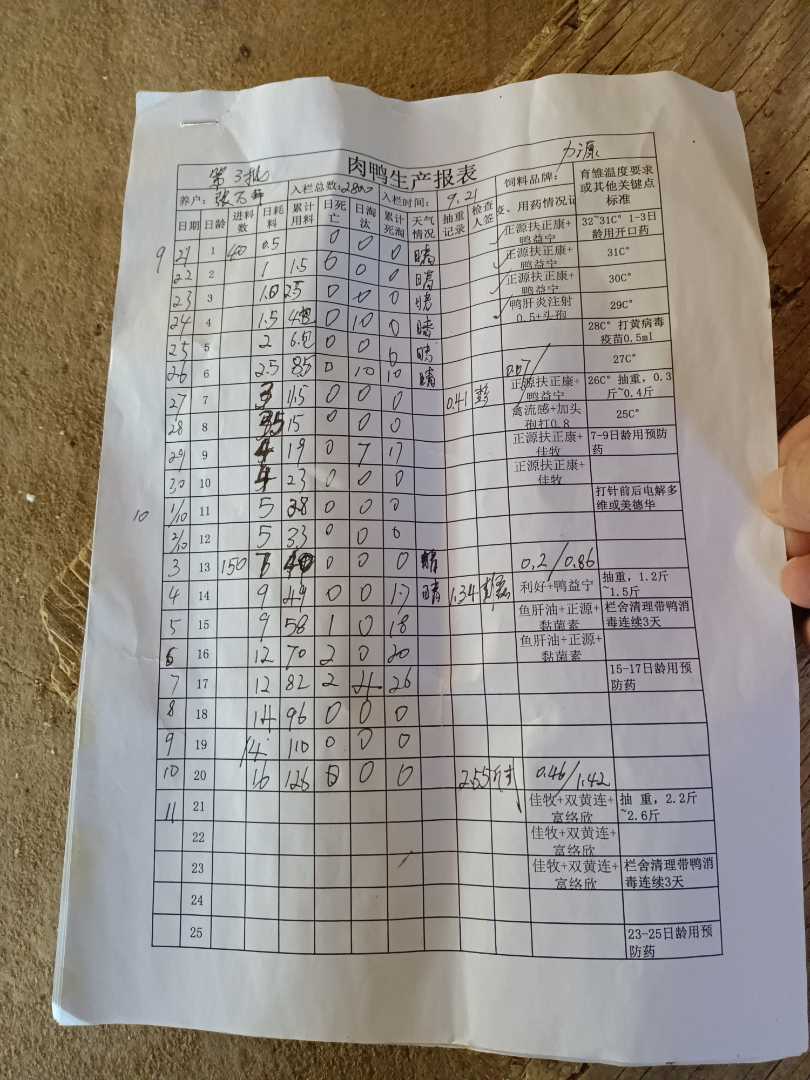 第3批 肉鸭生产报表 力源
养户: 张 入栏总数: 2800 入栏时间: 9.21 饲料品牌: 育雏温度要求或其他关键点标准
日期 日龄 进料数 日耗料 累计用料 日死亡 日淘汰 累计死淘 天气情况 抽重记录 检查人签 变、用药情况记
9 21 1 40 0.5 0 0 0 晴 正源扶正康+鸭益宁 32~31C° 1-3日龄用开口药
22 2 1 1.5 0 0 0 晴 正源扶正康+鸭益宁 31C°
23 3 1.0 2.5 0 0 0 晴 正源扶正康+鸭益宁 30C°
24 4 1.5 0 10 0 晴 鸭肝炎注射0.5+头孢 29C°
25 5 2 0 0 0 晴 28C° 打黄病毒疫苗0.5ml
26 6 2.5 8.5 0 10 10 晴 0.07/ 27C°
27 7 3 11.5 0 0 0 0.41 彭 正源扶正康+鸭益宁 26C° 抽重, 0.3斤~0.4斤
28 8 3.5 15 0 0 0 禽流感+加头孢打0.8 25C°
29 9 4 19 0 7 17 正源扶正康+佳牧 7-9日龄用预防药
30 10 4 23 0 0 0 正源扶正康+佳牧
10 1/10 11 5 28 0 0 0 打针前后电解多维或美德华
2/10 12 5 33 0 0 0
3 13 150 40 0 0 0 晴 0.2/0.86
4 14 9 49 0 0 17 晴 1.34 彭 利好+鸭益宁 抽重, 1.2斤~1.5斤
5 15 9 58 1 0 18 鱼肝油+正源+黏菌素 栏舍清理带鸭消毒连续3天
6 16 12 70 2 0 20 鱼肝油+正源+黏菌素
7 17 12 82 2 4 26 15-17日龄用预防药
8 18 14 96 0 0 0
9 19 14 110 0 0 0
10 20 16 126 0 0 0 2.55 0.46/1.42
11 21 佳牧+双黄连+富络欣 抽 重, 2.2斤~2.6斤
22 佳牧+双黄连+富络欣
23 佳牧+双黄连+富络欣 栏舍清理带鸭消毒连续3天
24
25 23-25日龄用预防药